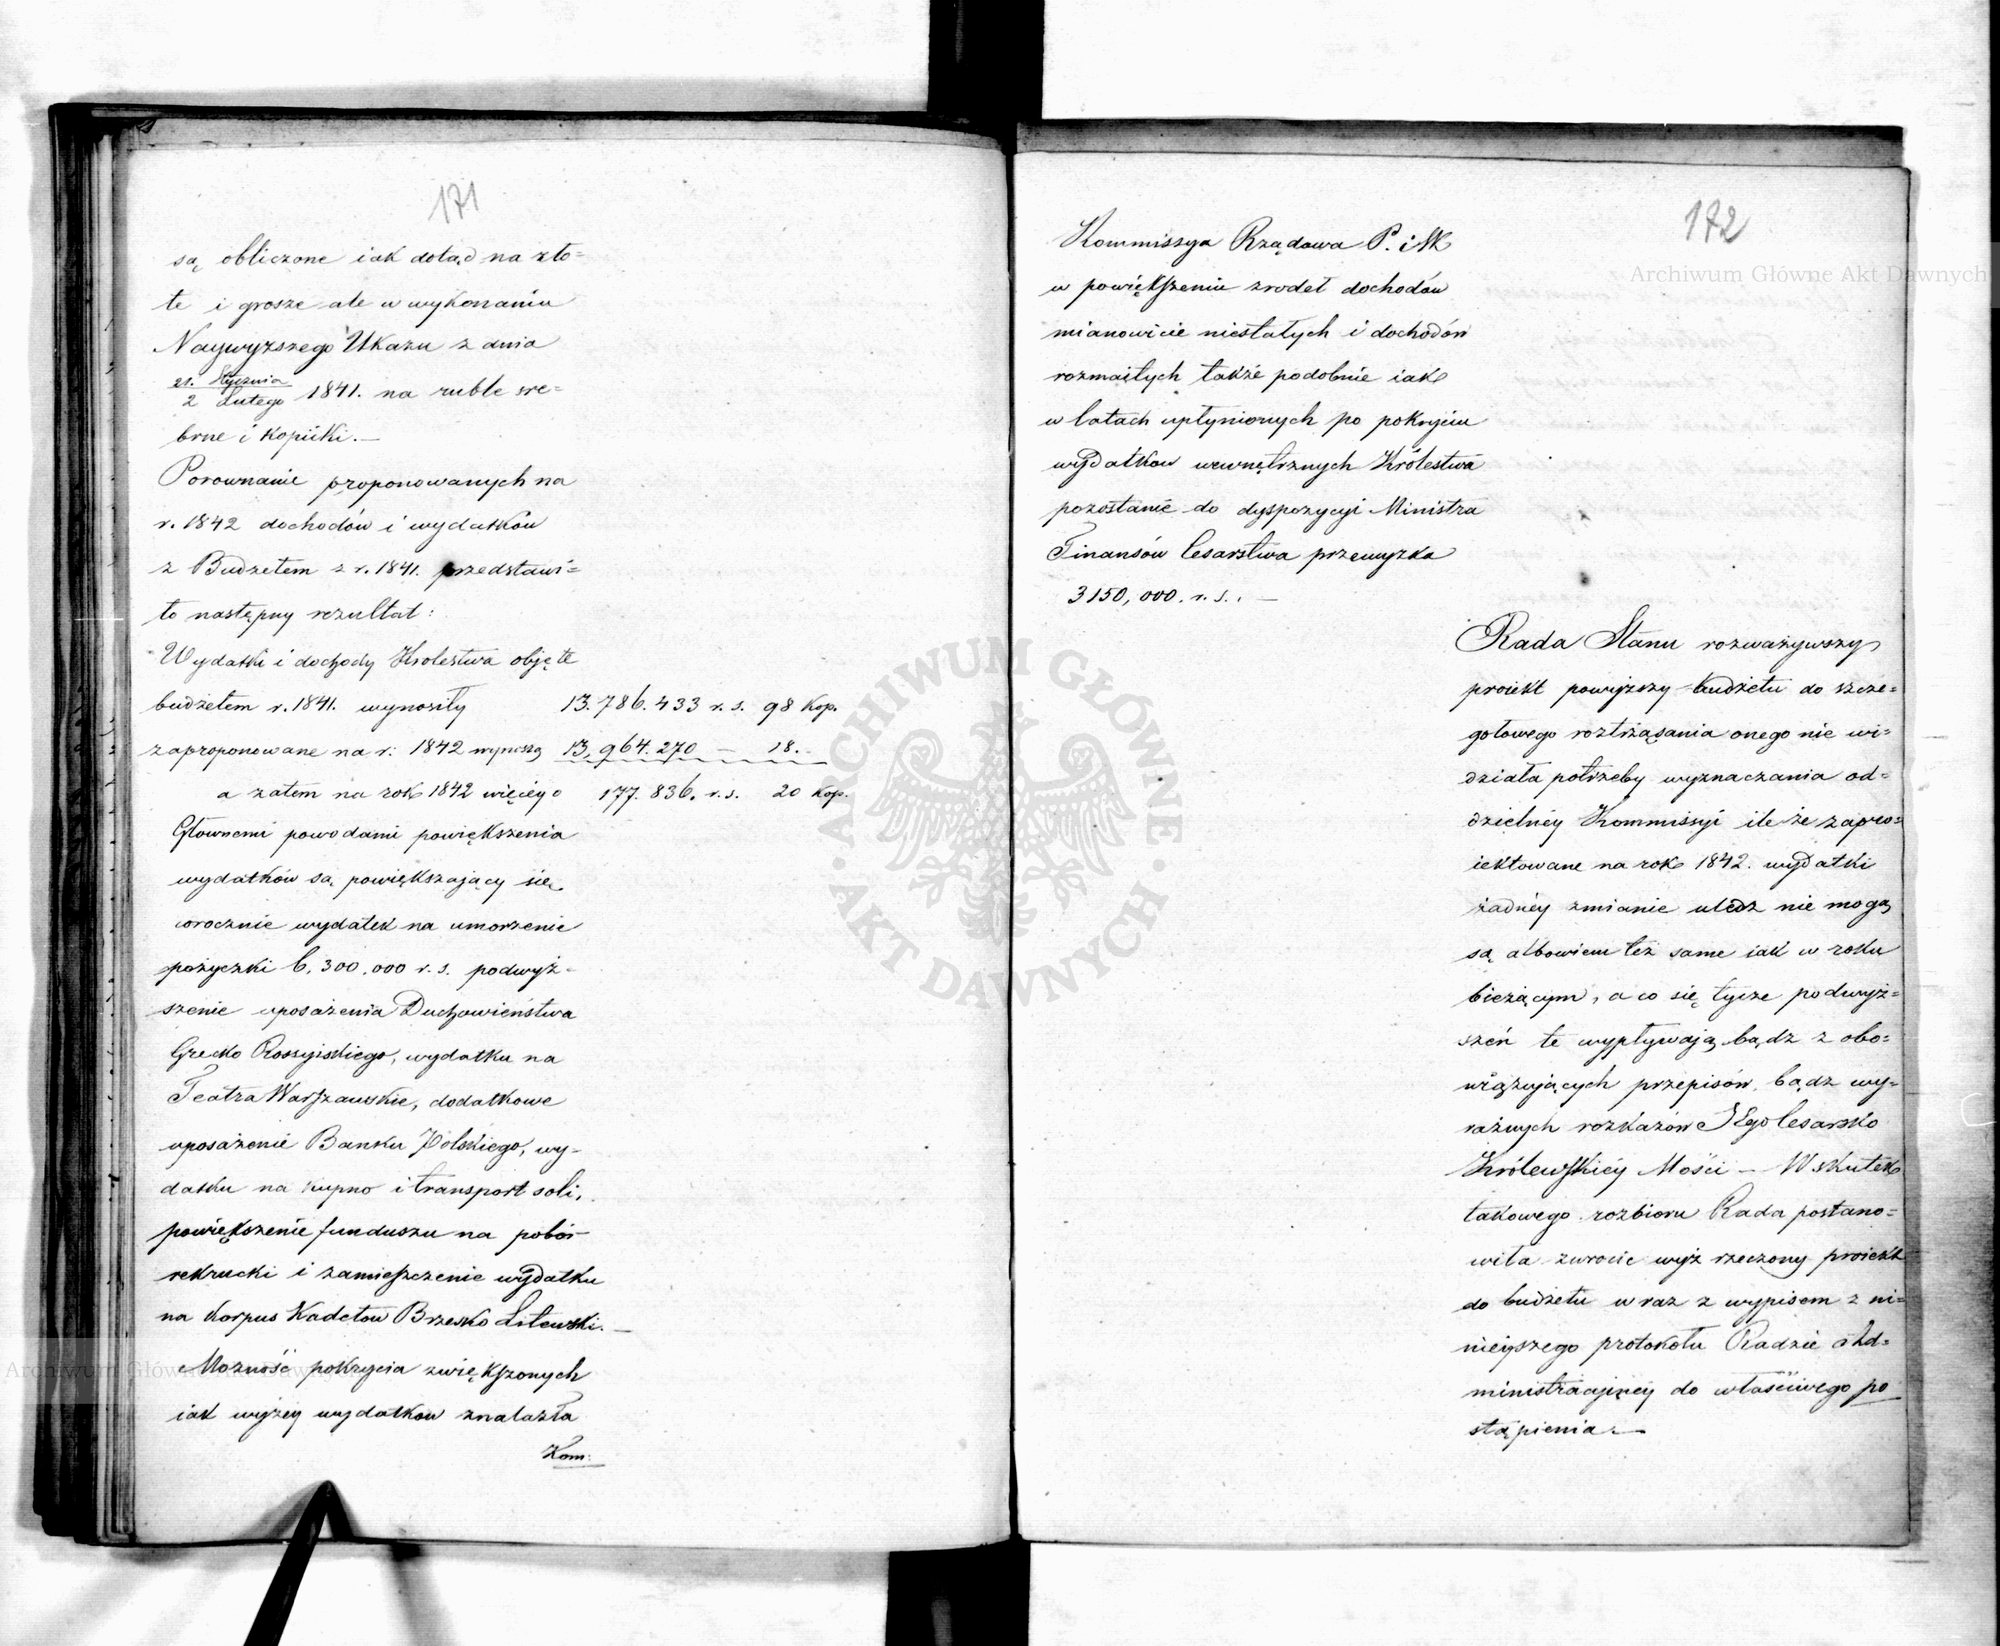 171
są obliczone iak dotąd na zło=
te i grosze ale w wykonaniu
Naywyższego Ukazu z dnia
21. Stycznia
2 Lutego 1841. na ruble sre=
brne i kopiiki. —
Porownanie proponowanych na
r. 1842 dochodów i wydatków
z Budżetem z r. 1841. przedstawi=
ło następny rezultat:
Wydatki i dochody Krolestwa objęte
budżetem r. 1841. wynosiły 13.786.433 r. s. 98 kop.
zaproponowane na r: 1842 wynoszą 13,964.270 — 18. -
a zatem na rok 1842 więcéy o 177.836. r. s. 20 kop.
Głownemi powodami powiększenia
wydatków są powiększający się
corocznie wydatek na umorzenie
pożyczki b. 300,000 r. s. podwyż=
szenie uposażenia Duchowieństwa
Grecko Rossyiskiego, wydatku na
Teatra Warszawskie, dodatkowe
uposażenie Banku Polskiego, wy=
datku na kupno i transport soli,
powiększenie funduszu na pobór
rekrucki i zamieszczenie wydatku
na Korpus Kadetow Brzesko Litewski. —
Możność pokrycia zwiększonych
iak wyżey wydatkow znalazła
Kom:
172
Kommissya Rządowa P. i Sk
w powiększeniu zrodeł dochodów
mianowicie niestałych i dochodów
rozmaitych także podobnie iak
w latach upłynionych po pokryciu
wydatkow wewnętrznych Królestwa
pozostanie do dyspozycyi Ministra
Finansów Cesarstwa przewyżka
3150,000. r. s. . —
Rada Stanu rozważywszy
proiekt powyższy budżetu do szcze=
gołowego roztrząsania onego nie wi=
działa potrzeby wyznaczania od=
dzielnéy Kommissyi ile że zapro=
iektowane na rok 1842. wydatki
żadnéy zmianie uledz nie mogą
są albowiem też same iak w roku
bieżącym, a co się tycze podwyż=
szeń te wypływają bądz z obo=
wiązujących przepisów, bądz wy=
raźnych rozkazów JEgo Cesarsko
Królewskiéy Mości — W skutek
takowego rozbioru Rada postano=
wiła zwrocić wyż rzeczony proiekt
do budżetu wraz z wypisem z ni=
nieyszego protokołu Radzie Ad=
ministracyjnéy do właściwego po
stąpienia. —
ARCHIWUM GŁÓWNE · AKT DAWNYCH ·
Archiwum Główne Akt Dawnych
Archiwum Główne Akt Dawnych